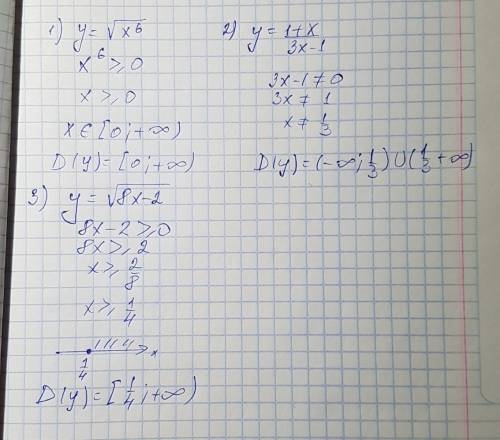 1) y = √x⁶
x⁶ ⩾ 0
x ⩾ 0
x ∈ [0; +∞)
D(y) = [0; +∞)
2) y = (1+x)/(3x-1)
3x-1 ≠ 0
3x ≠ 1
x ≠ 1/3
D(y) = (-∞; 1/3) ∪ (1/3 +∞)
3) y = √8x-2
8x-2 ⩾ 0
8x ⩾ 2
x ⩾ 2/8
x ⩾ 1/4
1/4 x
D(y) = [1/4; +∞)